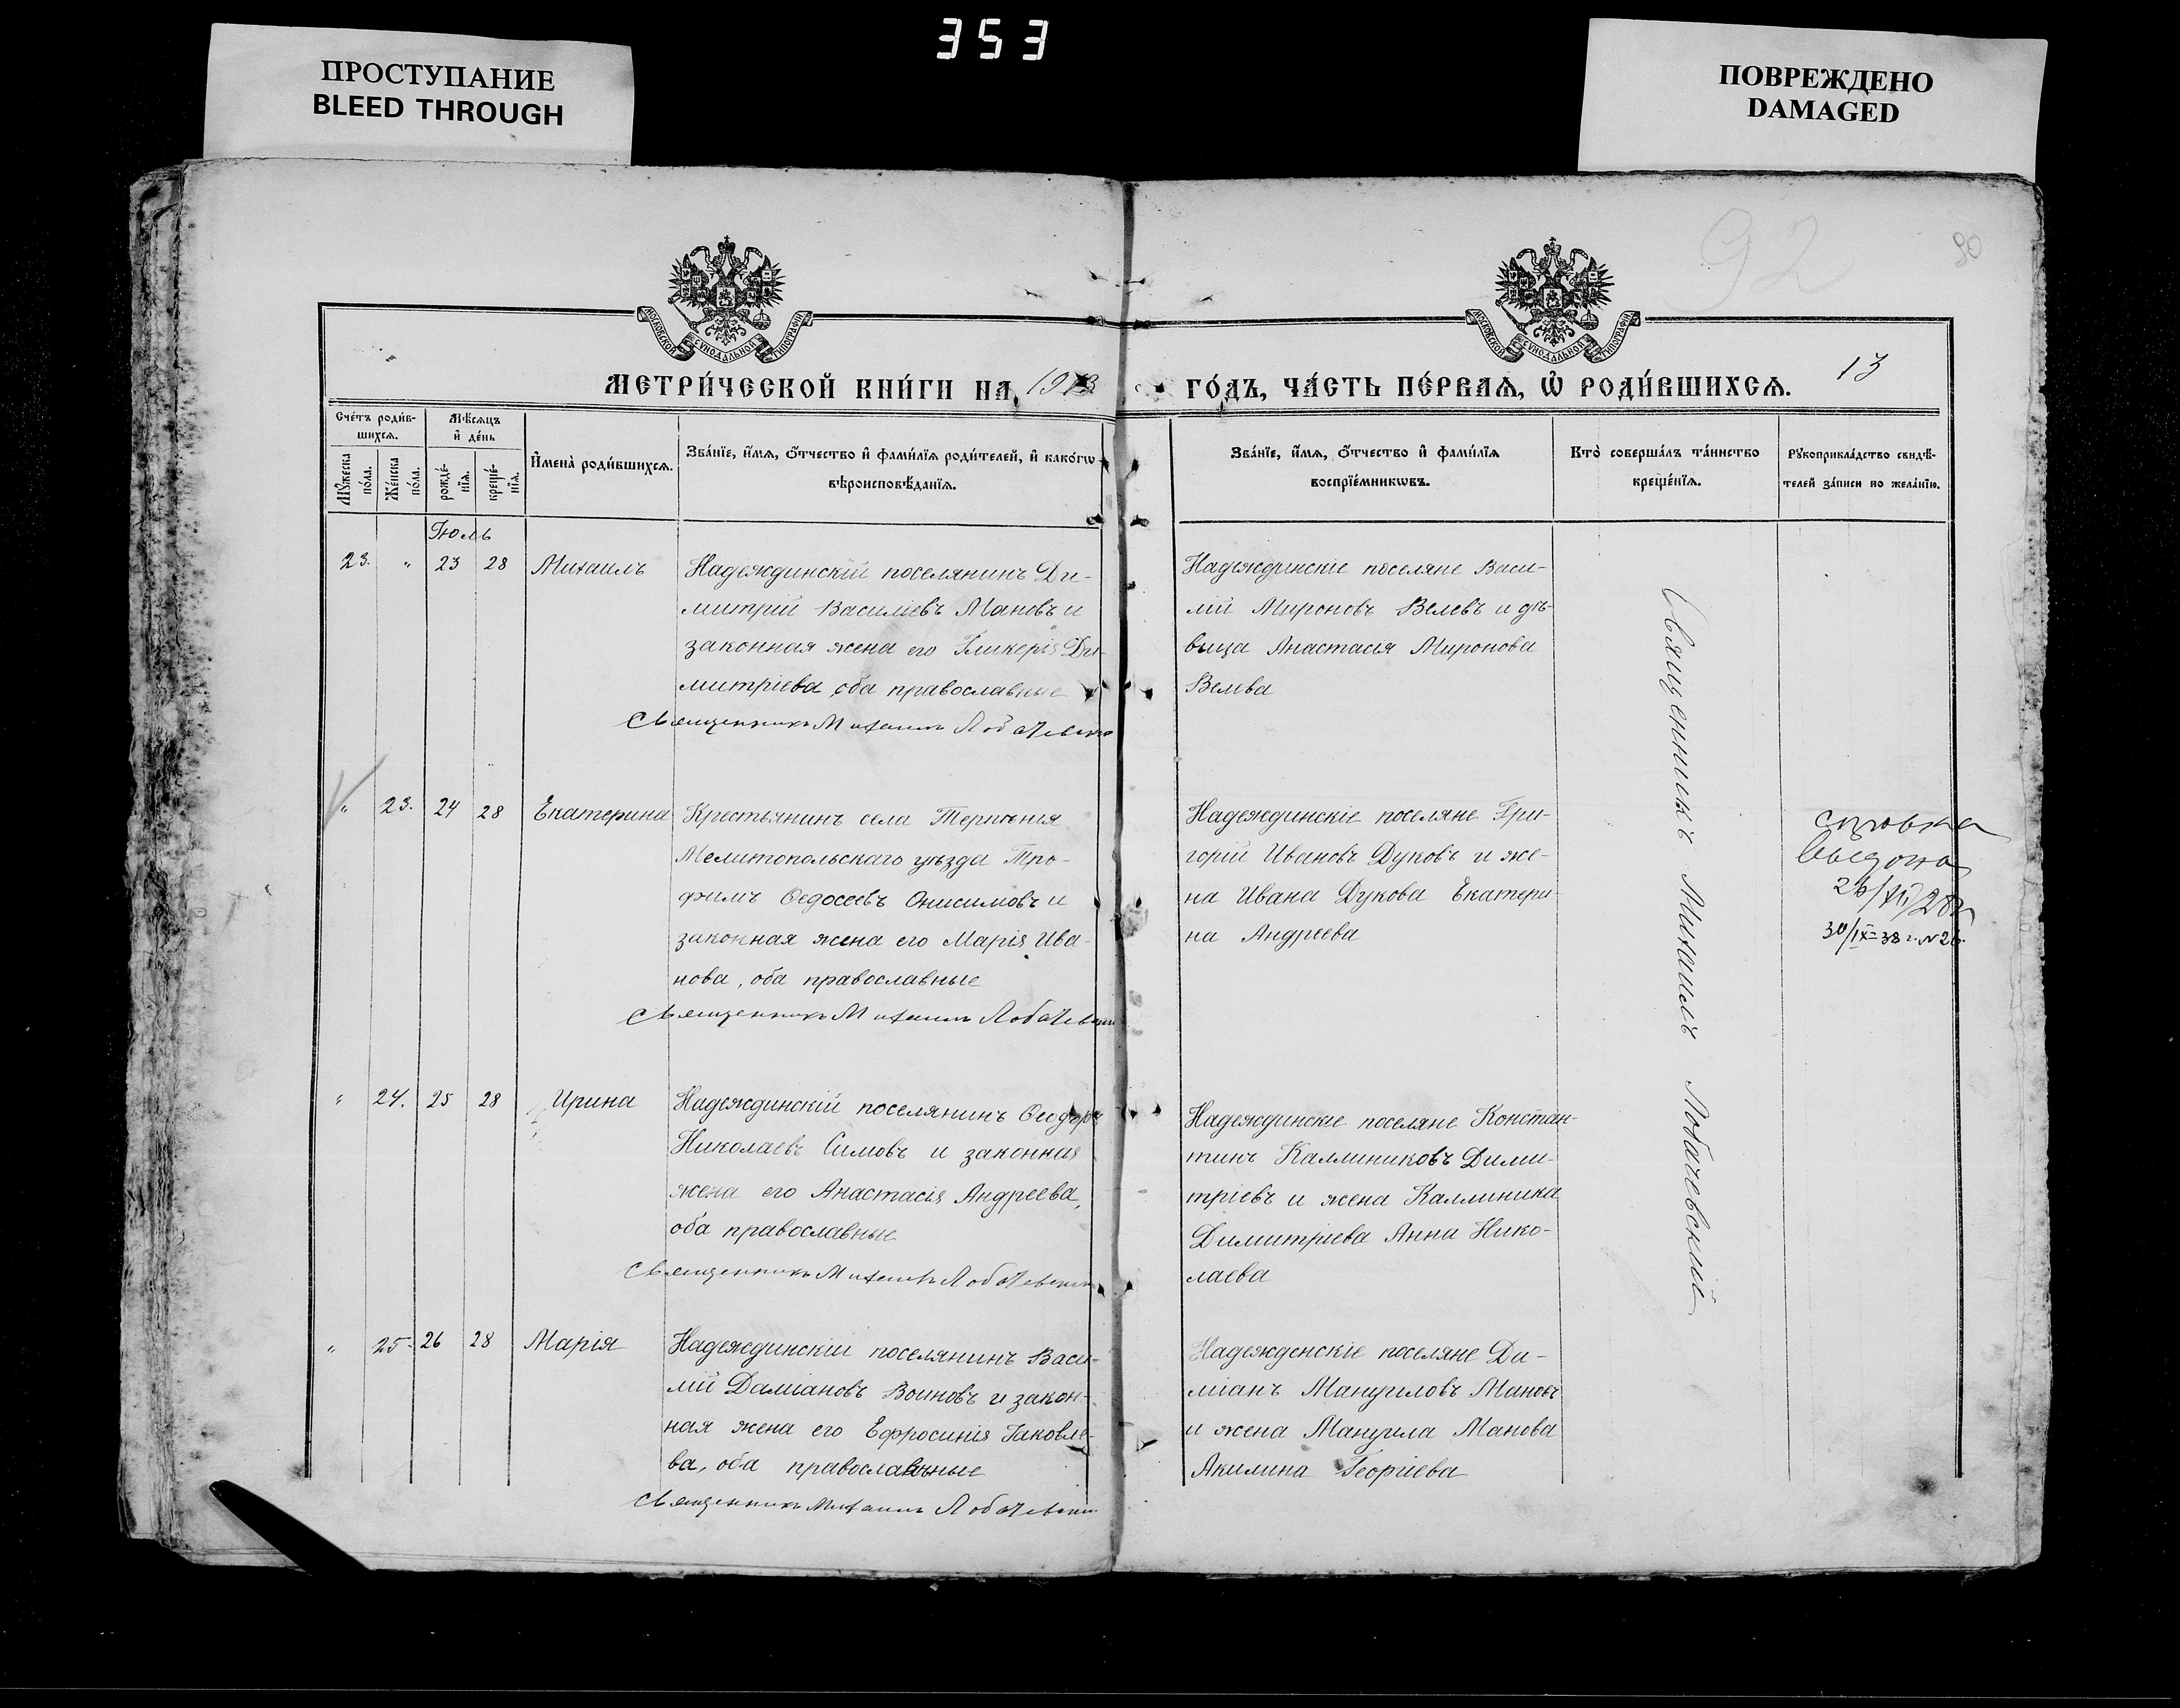 353
ПРОСТУПАНИЕ
BLEED THROUGH
ПОВРЕЖДЕНО
DAMAGED
92
МОСКОВСКОЙ СѴНОДАЛЬНОЙ ТИПОГРАФІИ
МОСКОВСКОЙ СѴНОДАЛЬНОЙ ТИПОГРАФІИ
МЕТРИ́ЧЕСКОЙ КНИ́ГИ НА 1913 ГО́ДЪ, ЧА́СТЬ ПЕ́РВАѦ, Ѽ РОДИ́ВШИХСѦ. 13
Сче́тъ роди́в-
шихсѧ.
Мꙋ́жеска
по́ла.
Же́нска
по́ла.
Мѣ́сѧцъ
и҆ де́нь
рожде́-
нїѧ.
креще́-
нїѧ.
И҆мена̀ роди́вшихсѧ.
Зва́нїе, и҆́мѧ, ѻ҆́тчество и҆ фами́лїѧ роди́телей, и҆ како́гѡ
вѣроисповѣ́данїѧ.
Зва́нїе, и҆́мѧ, ѻ҆́тчество и҆ фами́лїѧ
воспрїе́мникѡвъ.
Кто̀ соверша́лъ та́инство
креще́нїѧ.
Рꙋкоприкла́дство свидѣ́-
телей за́писи по жела́нїю.
Іюль
23. " 23 28 Михаилъ
Надеждинскій поселянинъ Ди-
митрій Василіевъ Мановъ и
законная жена его Гликерія Ди-
митріева, оба православные
Священникъ Михаилъ Лобачевскій
Надеждинскіе поселяне Васи-
лій Мироновъ Велевъ и дѣ-
вица Анастасія Миронова
Велева
" 23. 24 28 Екатерина
Крестьянинъ села Терпѣнія
Мелитопольскаго уѣзда Тро-
фимъ Ѳедосеевъ Онисимовъ и
законная жена его Марія Ива-
нова, оба православные
Священникъ Михаилъ Лобачевскій
Надеждинскіе поселяне Гри-
горій Ивановъ Дуковъ и же-
на Ивана Дукова Екатери-
на Андреева
справка
выдана
30/IX-38 г. № 26.
" 24. 25 28 Ирина
Надеждинскій поселянинъ Ѳеодоръ
Николаевъ Симовъ и законная
жена его Анастасія Андреева,
оба православные
Священникъ Михаилъ Лобачевскій
Надеждинскіе поселяне Констан-
тинъ Каллиниковъ Дими-
тріевъ и жена Каллиника
Димитріева Анна Нико-
лаева
" 25. 26 28 Марія
Надеждинскій поселянинъ Васи-
лій Даміановъ Воиновъ и закон-
ная жена его Ефросинія Іаковле-
ва, оба православные
Священникъ Михаилъ Лобачевскій
Надежденскіе поселяне Да-
міанъ Мануиловъ Мановъ
и жена Мануила Манова
Акилина Георгіева
Священникъ Михаилъ Лобачевскій